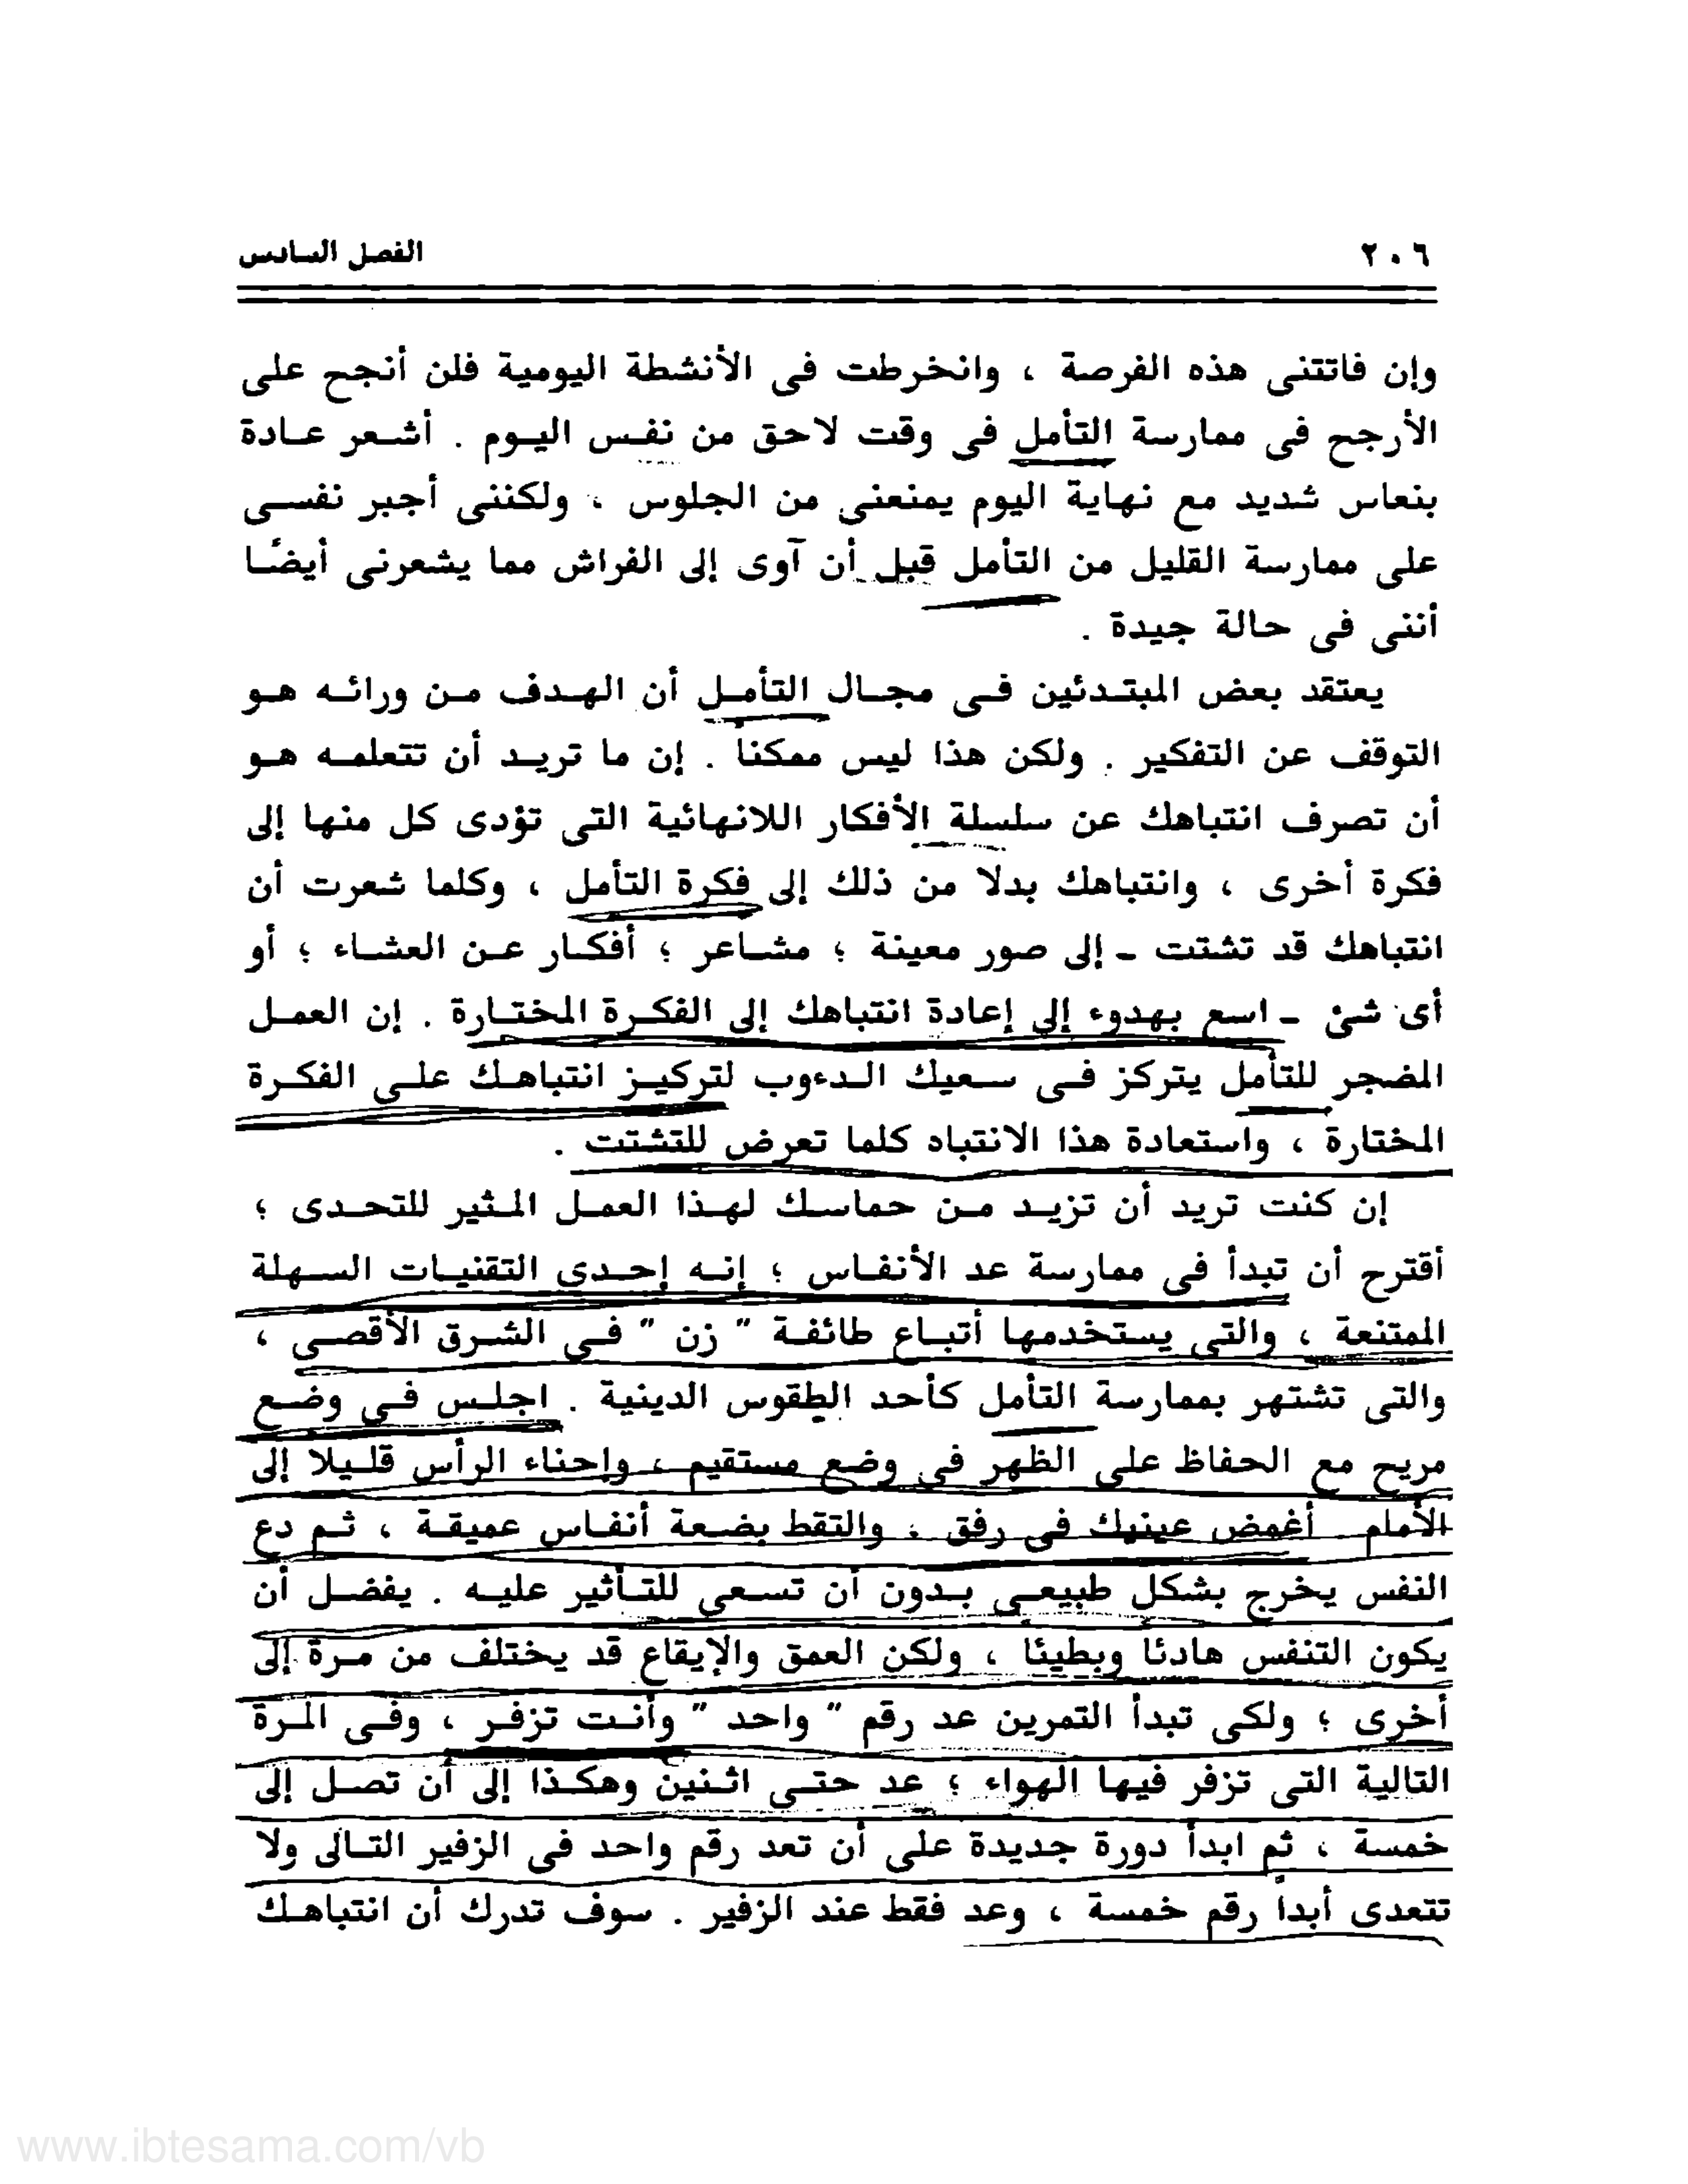 ٢٠٦
الفصل السادس
وإن فاتتنى هذه الفرصة ، وانخرطت فى الأنشطة اليومية فلن أنجح على
الأرجح فى ممارسة التأمل فى وقت لاحق من نفـس اليـوم . أشـعر عـادة
بنعاس شديد مع نهاية اليوم يمنعنى من الجلوس ، ولكننى أجبر نفسـى
على ممارسة القليل من التأمل قبل أن آوى إلى الفراش مما يشعرنى أيضًـا
أننى فى حالة جيدة .
يعتقد بعض المبتـدئين فـى مجـال التأمـل أن الهـدف مـن ورائـه هـو
التوقف عن التفكير . ولكن هذا ليس ممكناً . إن ما تريـد أن تتعلمـه هـو
أن تصرف انتباهك عن سلسلة الأفكار اللانهائية التى تؤدى كل منها إلى
فكرة أخرى ، وانتباهك بدلا من ذلك إلى فكرة التأمل ، وكلما شعرت أن
انتباهك قد تشتت ـ إلى صور معينة ؛ مشـاعر ؛ أفكـار عـن العشـاء ؛ أو
أى شئ ـ اسع بهدوء إلى إعادة انتباهك إلى الفكـرة المختـارة . إن العمـل
المضجر للتأمل يتركز فـى سـعيك الـدءوب لتركيـز انتباهـك علـى الفكـرة
المختارة ، واستعادة هذا الانتباه كلما تعرض للتشتت .
إن كنت تريد أن تزيـد مـن حماسـك لهـذا العمـل المـثير للتحـدى ؛
أقترح أن تبدأ فى ممارسة عد الأنفـاس ؛ إنـه إحـدى التقنيـات السـهلة
الممتنعة ، والتى يستخدمها أتبـاع طائفـة " زن " فـى الشـرق الأقصـى ،
والتى تشتهر بممارسة التأمل كأحد الطقوس الدينية . اجلـس فـى وضـع
مريح مع الحفاظ على الظهر فى وضع مستقيم ، وإحناء الرأس قلـيلا إلى
الأمام . أغمض عينيك فى رفق . والتقط بضـعة أنفـاس عميقـة ، ثـم دع
النفس يخرج بشكل طبيعـى بـدون أن تسـعى للتـأثير عليـه . يفضـل أن
يكون التنفس هادئا وبطيئا ، ولكن العمق والإيقاع قد يختلف من مـرة إلى
أخرى ؛ ولكى تبدأ التمرين عد رقم " واحد " وأنـت تزفـر ، وفـى المـرة
التالية التى تزفر فيها الهواء ؛ عد حتـى اثـنين وهكـذا إلى أن تصـل إلى
خمسة ، ثم ابدأ دورة جديدة على أن تعد رقم واحد فى الزفير التـالى ولا
تتعدى أبداً رقم خمسة ، وعد فقط عند الزفير . سوف تدرك أن انتباهـك
www.ibtesama.com/vb